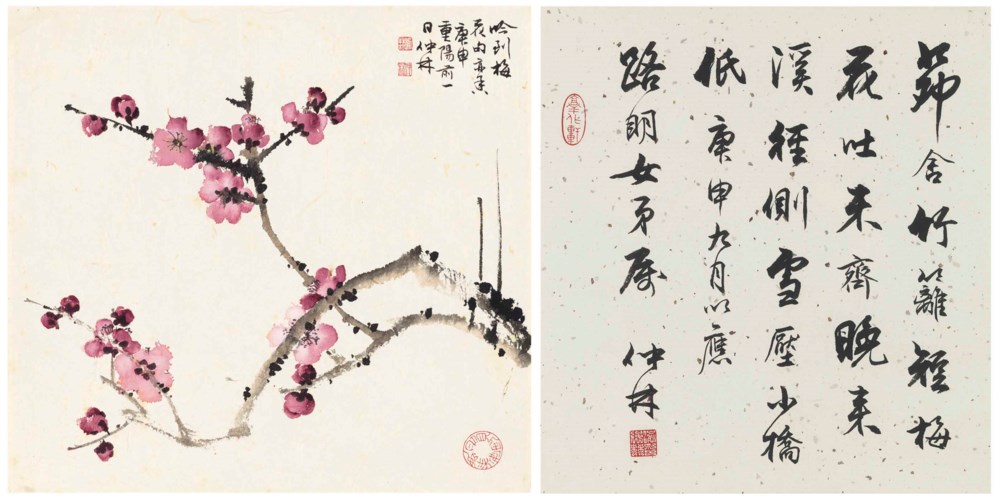 吟到梅
花句亦香
庚申
重陽前一
日仲林
茆舍竹籬短梅
花吐未齊晚來
溪徑側雪壓小橋
低 庚申九月以應
路明女弟属 仲林